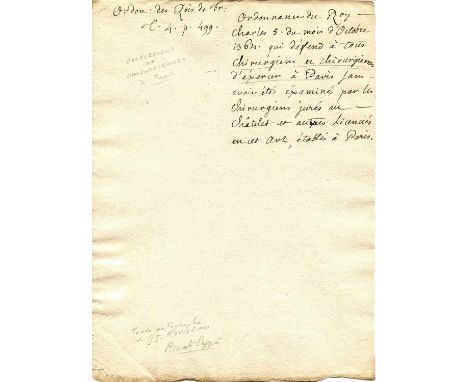 Ordon: des Rois de Fr.
t. 4. p. 499.
CHIRURGIENS
ET
CHIRURGIENNES
à Paris
Ordonnance du Roy
Charles 5. du mois d'Octobre
1364. qui défend à tous
chirurgiens et chirurgiennes
d'éxercer à Paris sans
avoir étés examinés par les
Chirurgiens jurés au
Châtelet et autres Licenciés
en cet Art, établis à Paris.
Texte autographe
de J.J. ROUSSEAU